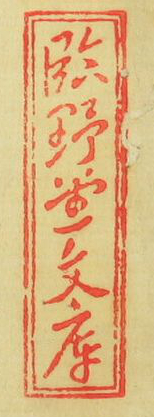 臨野堂文庫